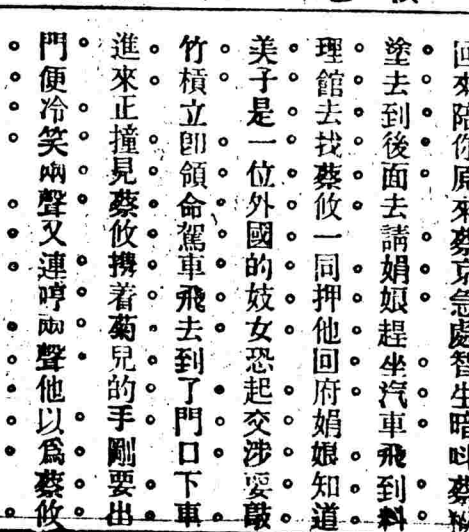 回來陪你原來蔡京急處智生暗叫蔡
塗去到後面去請娟娘趕坐汽車飛到料
理館去找蔡攸一同押他回府娟娘知道
美子是一位外國的妓女恐起交涉要敲
竹槓立卽領命駕車飛去到了門口下車
進來正撞見蔡攸攜着菊兒的手剛要出
門便冷笑兩聲又連哼兩聲他以爲蔡攸